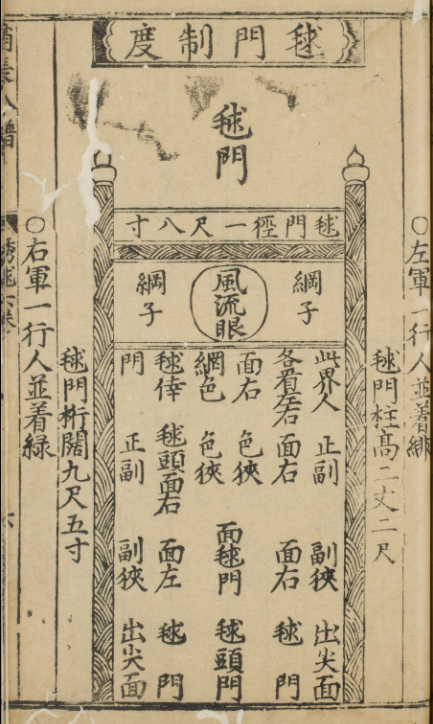 毬門制度
毬門
○左軍一行人並着緋
毬門柱高二丈二尺
毬門徑一尺八寸
綱子
風流眼
綱子
此界人 正副 副挾 出尖面
各着左右 面右 面右 毬門
面右 色挾
網色 色挾
面毬門 毬頭門
毬倖 毬頭面右 面左 毬門
門 正副 副挾 出尖面
毬門桁闊九尺五寸
○右軍一行人並着緑
六